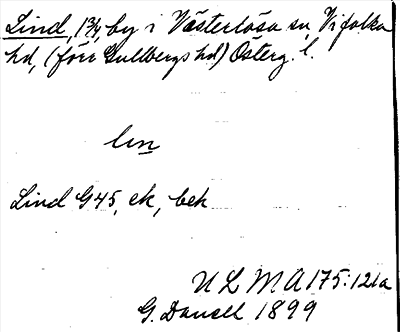 Lind, 1 3/4, by i Västerlösa sn, Vifolka
hd, (förr Gullbergs hd) Österg. l.
lin
Lind G45, ek, bek
ULMA 175:121a
G. Danell 1899